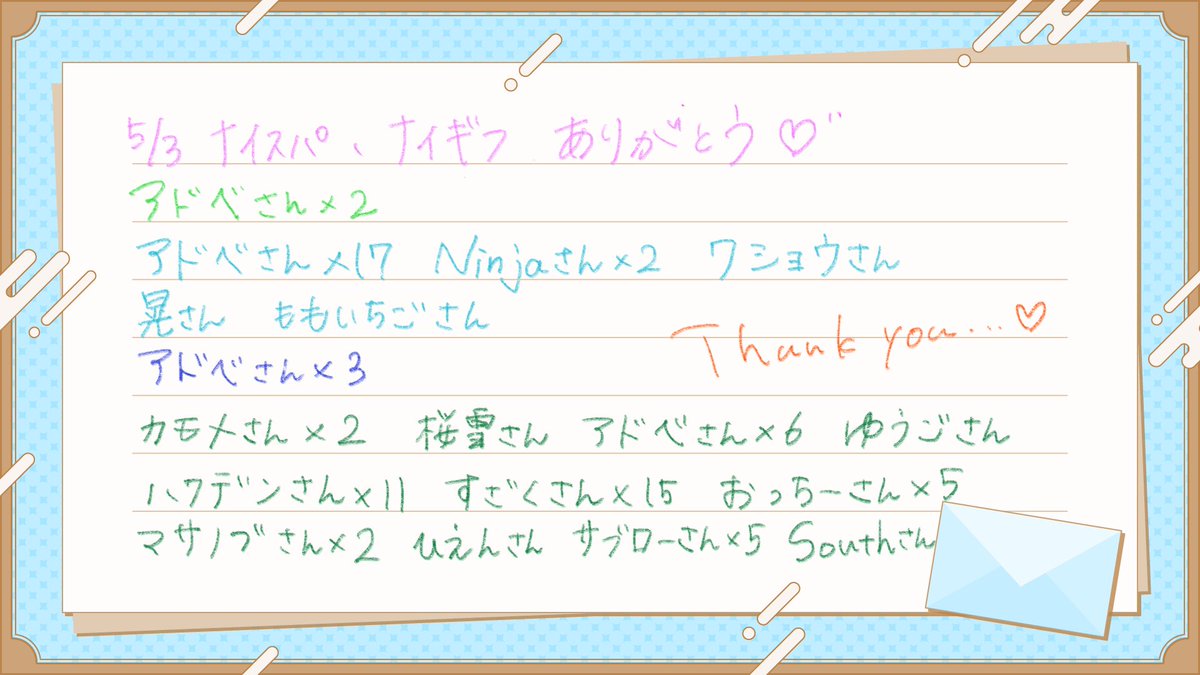 5/3 ナイスパ、ナイギフ ありがとう♡
アドベさん×2
アドベさん×17 Ninjaさん×2 ワショウさん
晃さん ももいちごさん
Thank you...♡
アドベさん×3
カモメさん×2 桜雪さん アドベさん×6 ゆうごさん
ハクデンさん×11 すざくさん×15 おっちーさん×5
マサノブさん×2 ひえんさん サブローさん×5 Southさん